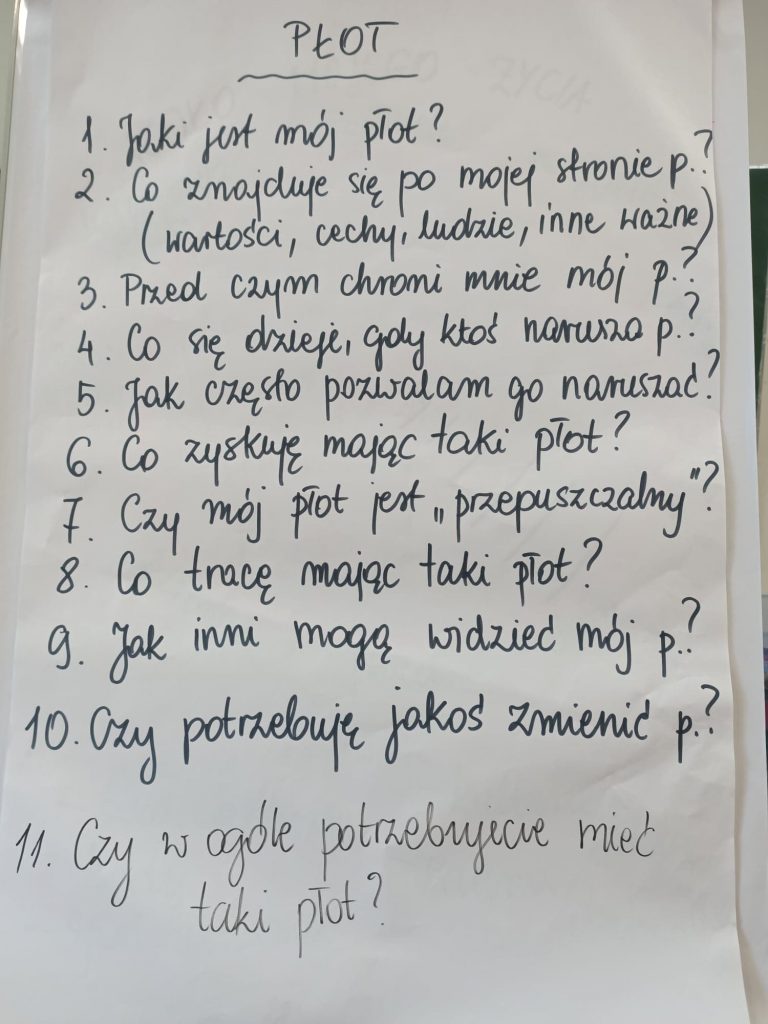 PŁOT
1. Jaki jest mój płot?
2. Co znajduje się po mojej stronie p.?
(wartości, cechy, ludzie, inne ważne)
3. Przed czym chroni mnie mój p.?
4. Co się dzieje, gdy ktoś narusza p.?
5. Jak często pozwalam go naruszać?
6. Co zyskuję mając taki płot?
7. Czy mój płot jest „przepuszczalny"?
8. Co tracę mając taki płot?
9. Jak inni mogą widzieć mój p.?
10. Czy potrzebuję jakoś zmienić p.?
11. Czy w ogóle potrzebujecie mieć
taki płot?